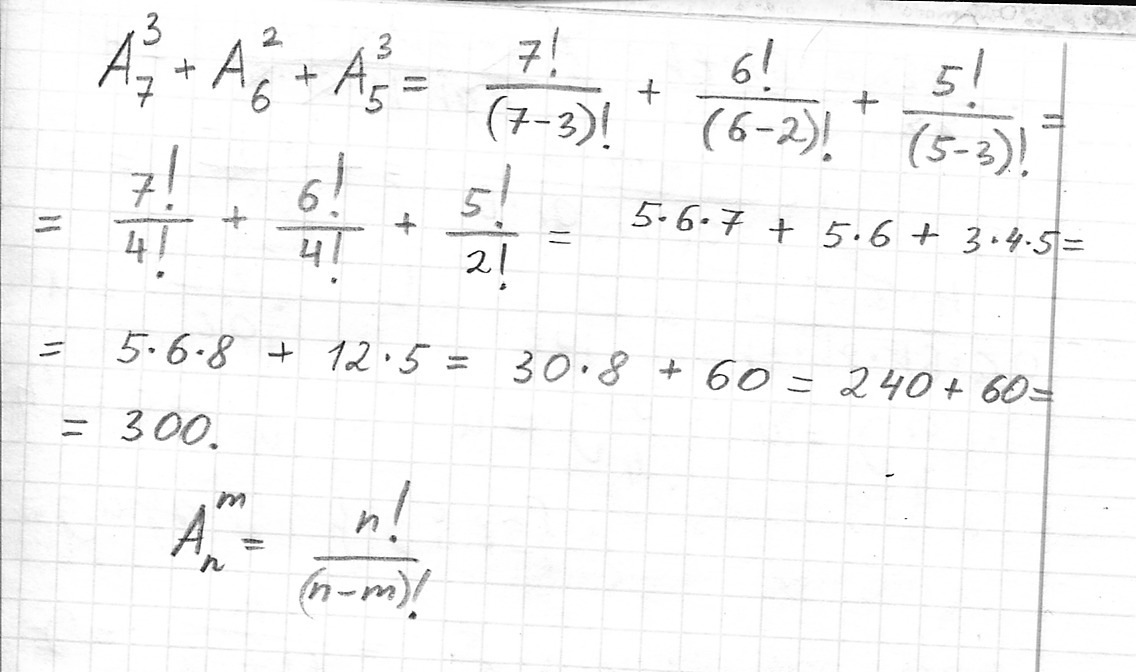 A₇³ + A₆² + A₅³ = 7!/(7-3)! + 6!/(6-2)! + 5!/(5-3)! =
= 7!/4! + 6!/4! + 5!/2! = 5·6·7 + 5·6 + 3·4·5 =
= 5·6·8 + 12·5 = 30·8 + 60 = 240 + 60 =
= 300.
Aₙᵐ = n!/(n-m)!